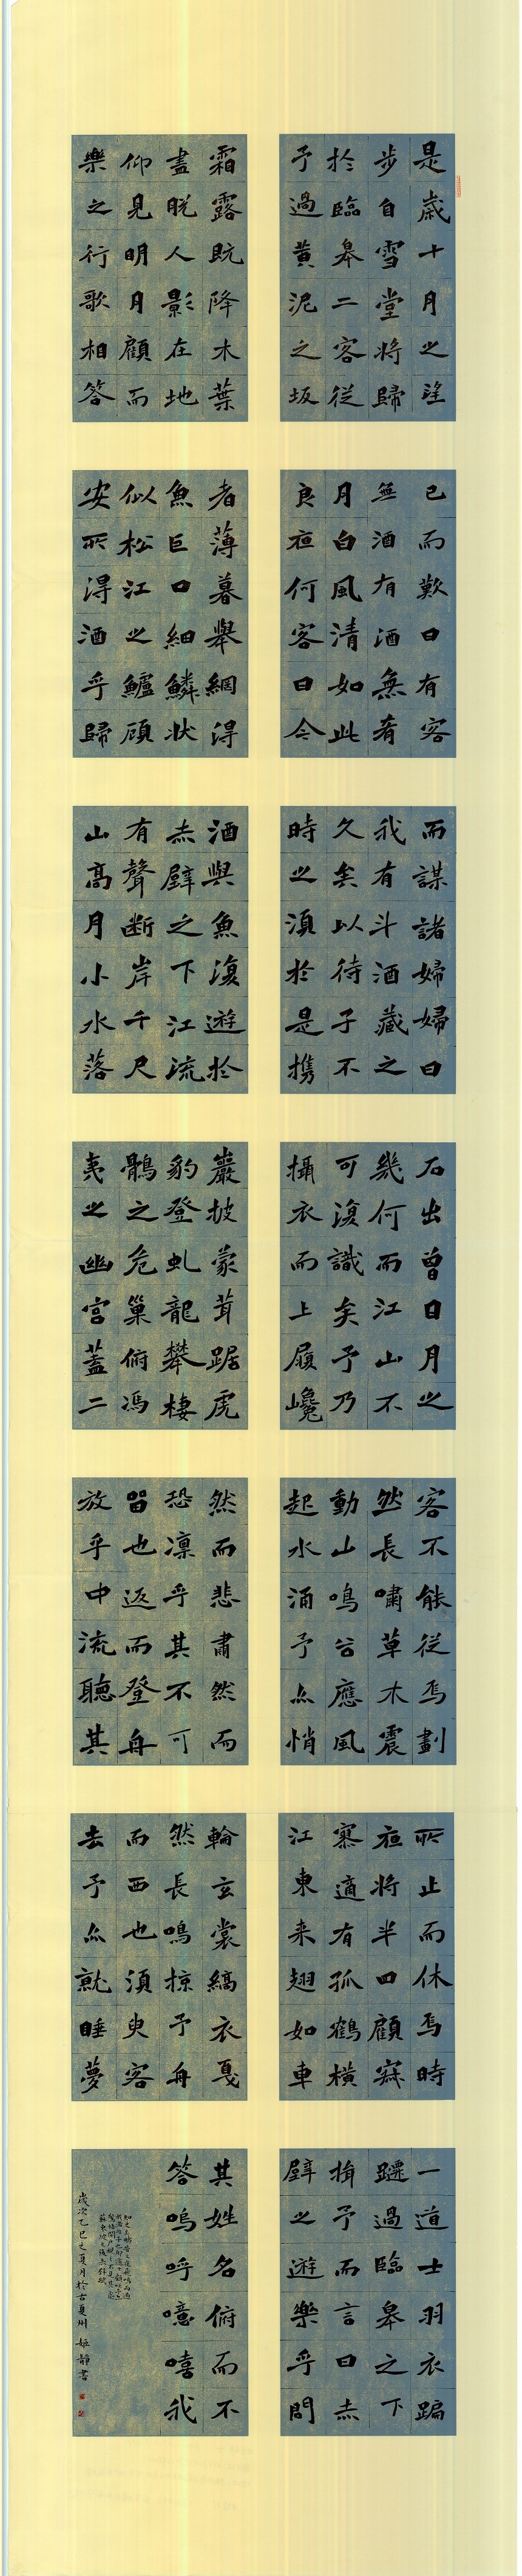 是歲十月之望
步自雪堂將歸
於臨皋二客從
予過黃泥之坂
霜露既降木葉
盡脫人影在地
仰見明月顧而
樂之行歌相答
已而歎曰有客
無酒有酒無肴
月白風清如此
良夜何客曰今
者薄暮舉網得
魚巨口細鱗狀
似松江之鱸顧
安所得酒乎歸
而謀諸婦婦曰
我有斗酒藏之
久矣以待子不
時之須於是携
酒與魚復遊於
赤壁之下江流
有聲斷岸千尺
山高月小水落
石出曾日月之
幾何而江山不
可復識矣予乃
攝衣而上履巉
巖披蒙茸踞虎
豹登虬龍攀棲
鶻之危巢俯馮
夷之幽宮蓋二
客不能從焉劃
然長嘯草木震
動山鳴谷應風
起水涌予亦悄
然而悲肅然而
恐凜乎其不可
留也返而登舟
放乎中流聽其
所止而休焉時
夜將半四顧寂
寥適有孤鶴橫
江東来翅如車
輪玄裳縞衣戛
然長鳴掠予舟
而西也須臾客
去予亦就睡夢
一道士羽衣蹁
躚過臨皋之下
揖予而言曰赤
壁之遊樂乎問
其姓名俯而不
答嗚呼噫嘻我
知之矣疇昔之夜飛鳴而過
我者非子也耶道士顧笑予亦
驚悟開戶視之不見其處
蘇東坡文後赤壁賦
歲次乙巳之夏月於古夏州 姬靜書